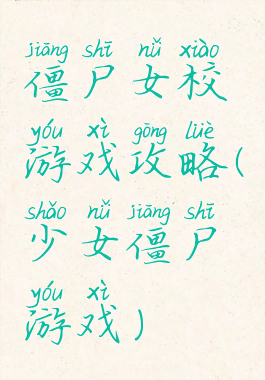 jiāng shī nǚ xiào
僵尸女校
yóu xì gōng lüè
游戏攻略(
shǎo nǚ jiāng shī
少女僵尸
yóu xì
游戏)